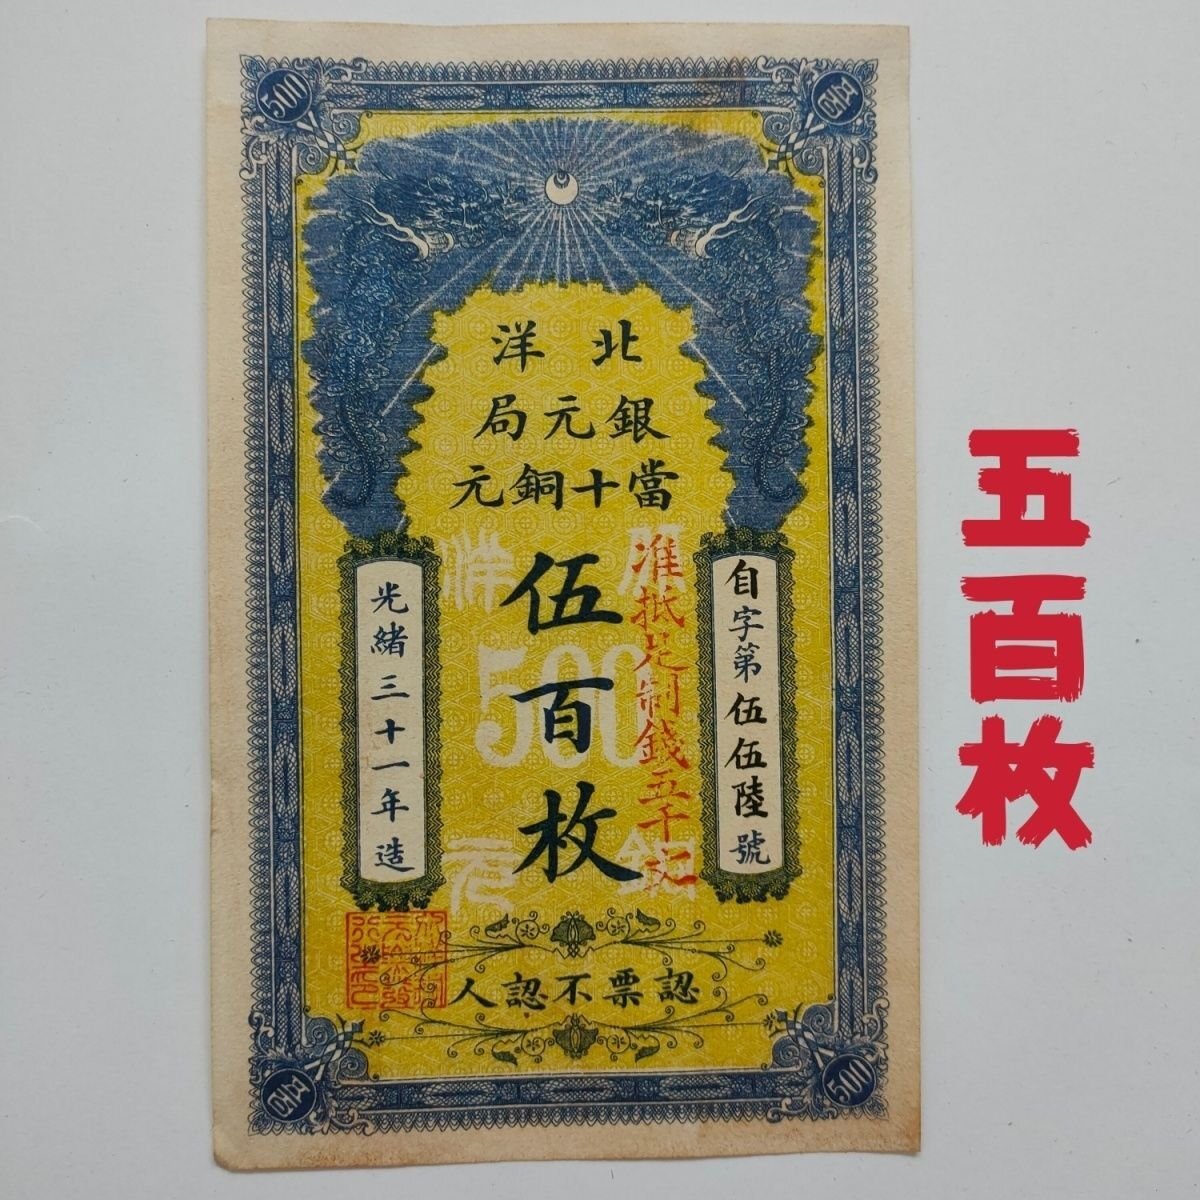 500
五百
北洋
銀元局
當十銅元
伍百枚
准抵足制錢五千文
自字第伍伍陸號
光緒三十一年造
500
認票不認人
五百
500
五百枚